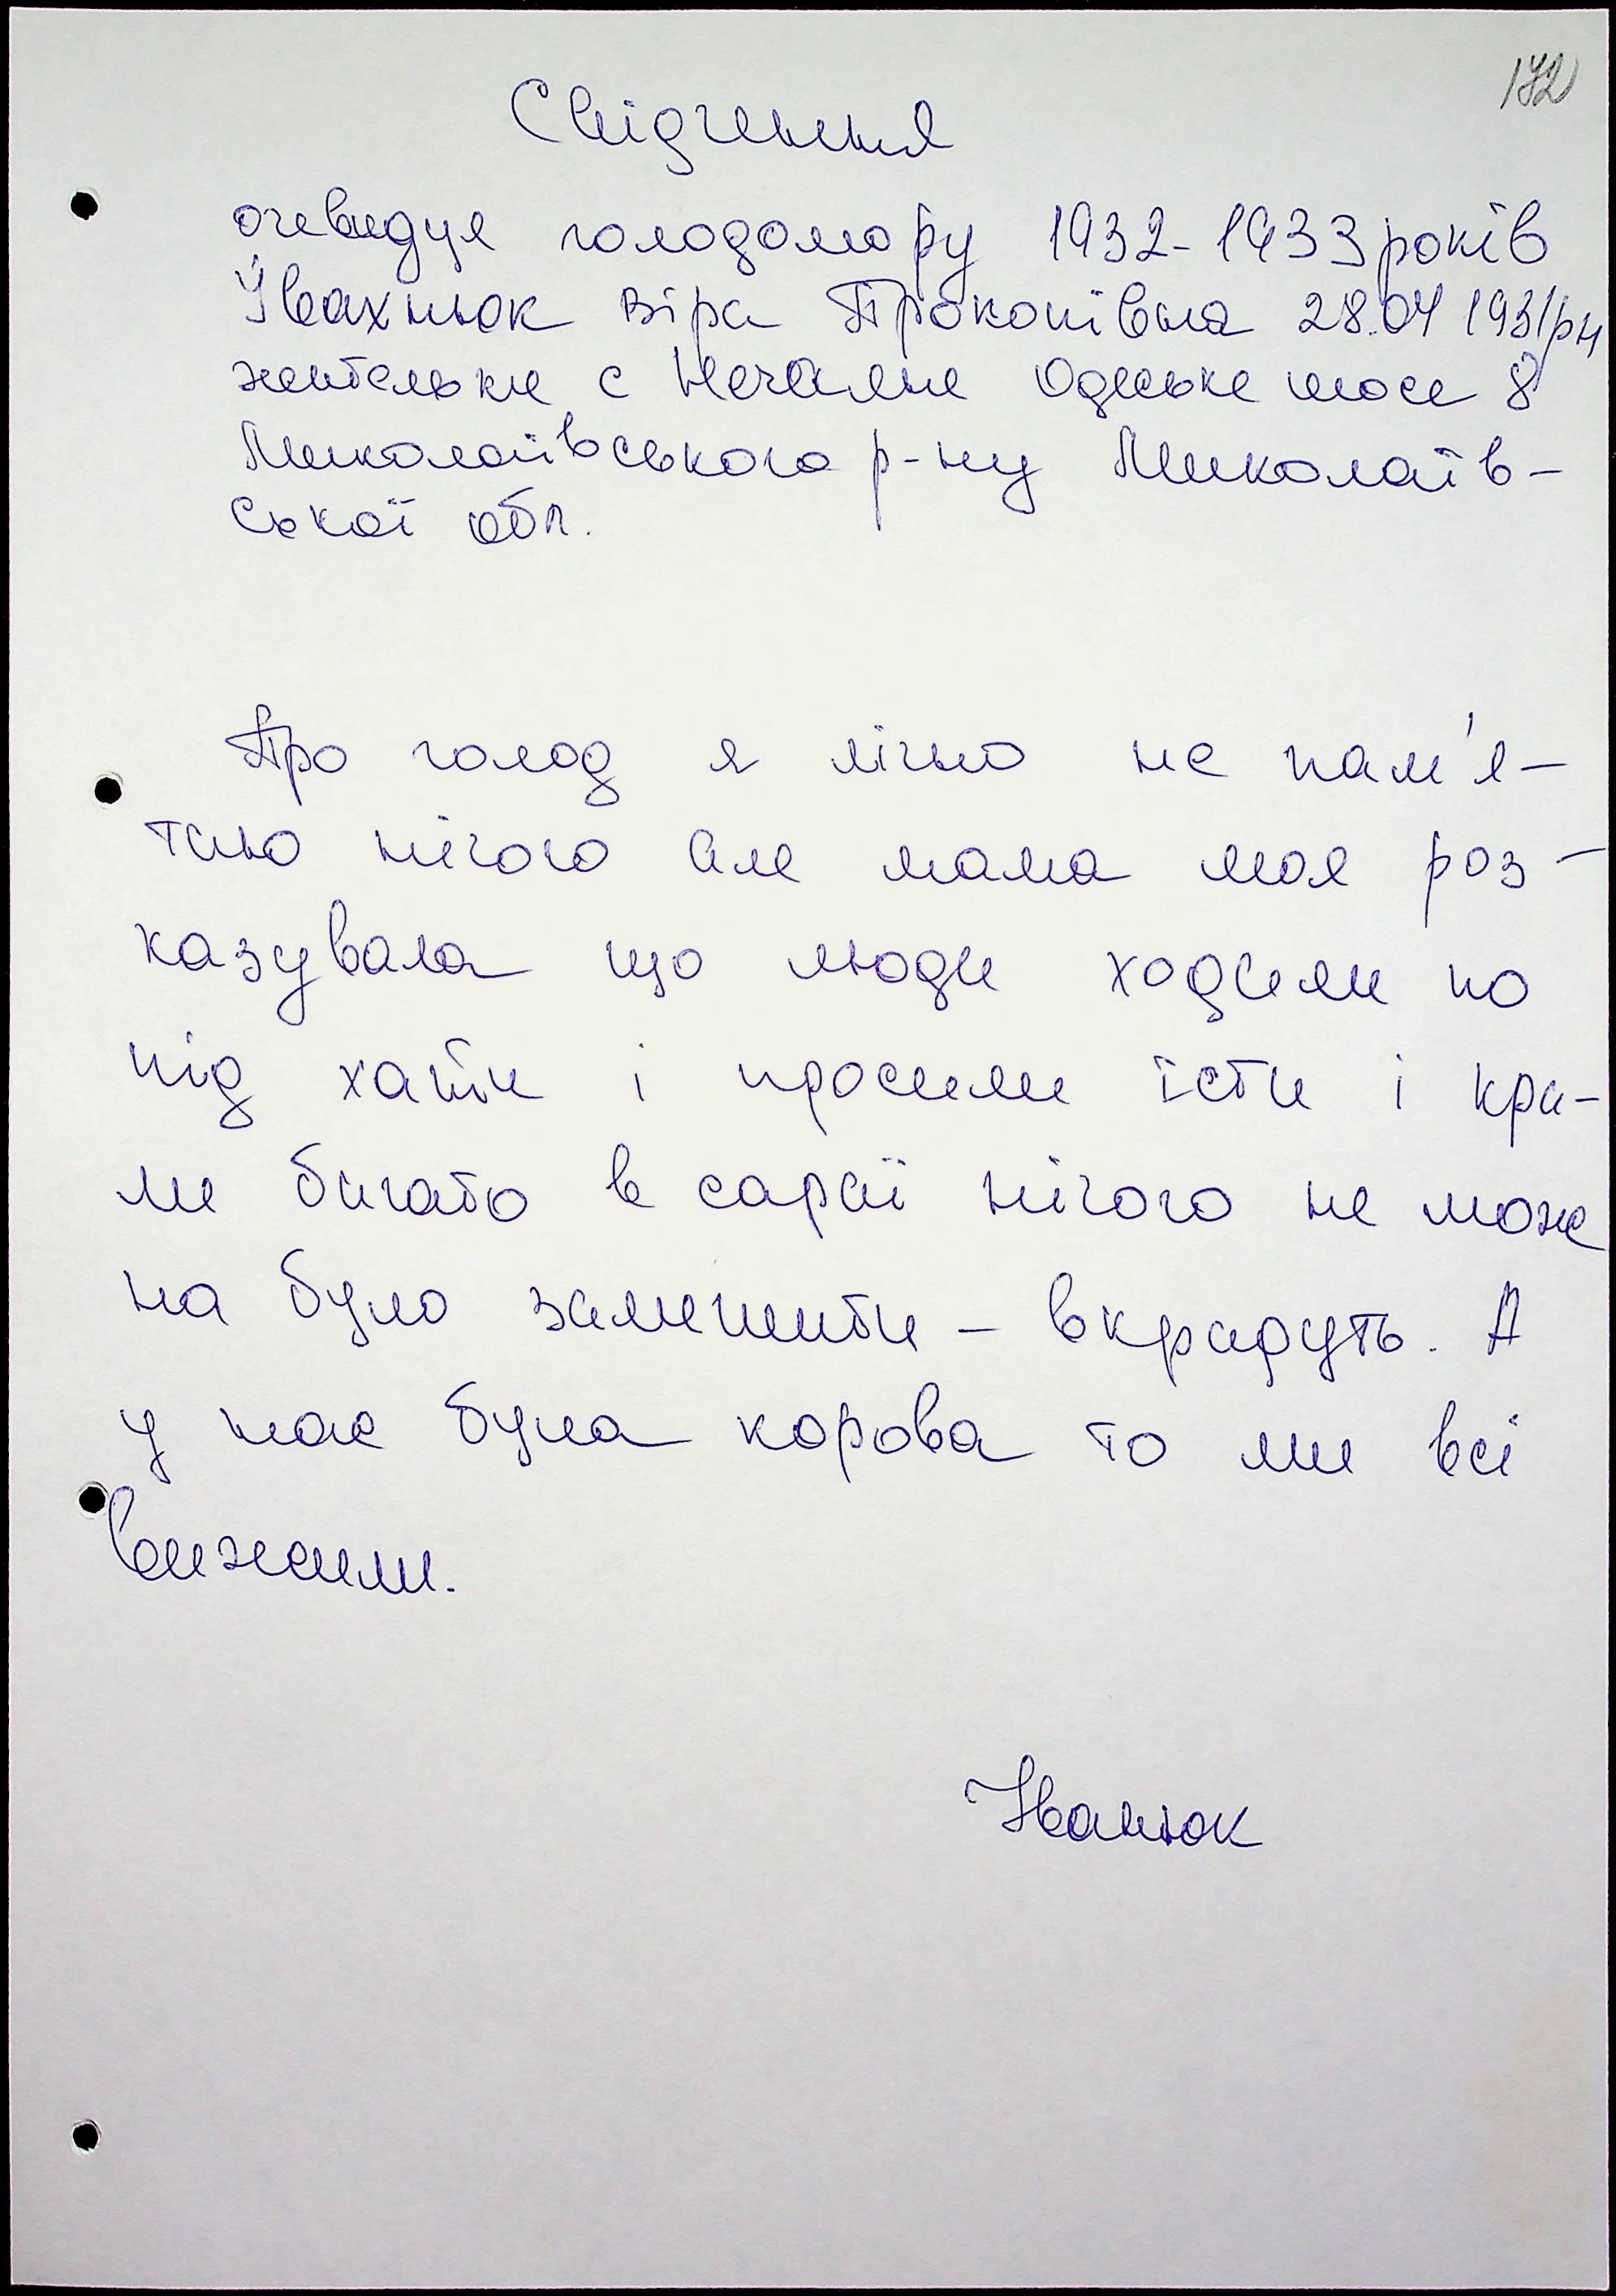 172
Свідчення
очевидця голодомору 1932-1933 років
Івахнюк Віра Прокопівна 28.04 1931рн
жительки с Нечаяне Одеське шосе 8
Миколаївського р-ну Миколаїв-
ської обл.
Про голод я лічно не пам'я-
таю нічого але мама моя роз-
казувала що люди ходили по
під хати і просили їсти і кра-
ли багато в сараї нічого не мож
на було залишити - вкрадуть. А
у нас була корова то ми всі
вижили.